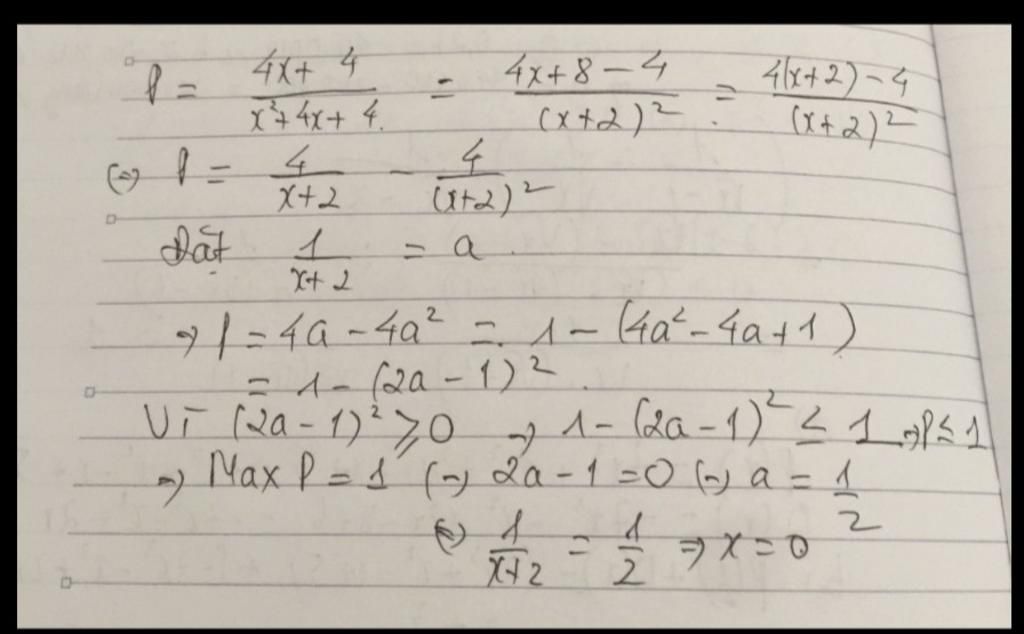 P = (4x + 4)/(x² + 4x + 4) = (4x + 8 - 4)/(x+2)² = (4(x+2) - 4)/(x+2)²
(=) P = 4/(x+2) - 4/(x+2)²
Đặt 1/(x+2) = a
=> P = 4a - 4a² = 1 - (4a² - 4a + 1)
= 1 - (2a - 1)²
Vì (2a - 1)² ≥ 0 => 1 - (2a - 1)² ≤ 1 => P ≤ 1
=> Max P = 1 (=) 2a - 1 = 0 (=) a = 1/2
(=) 1/(x+2) = 1/2 => x = 0